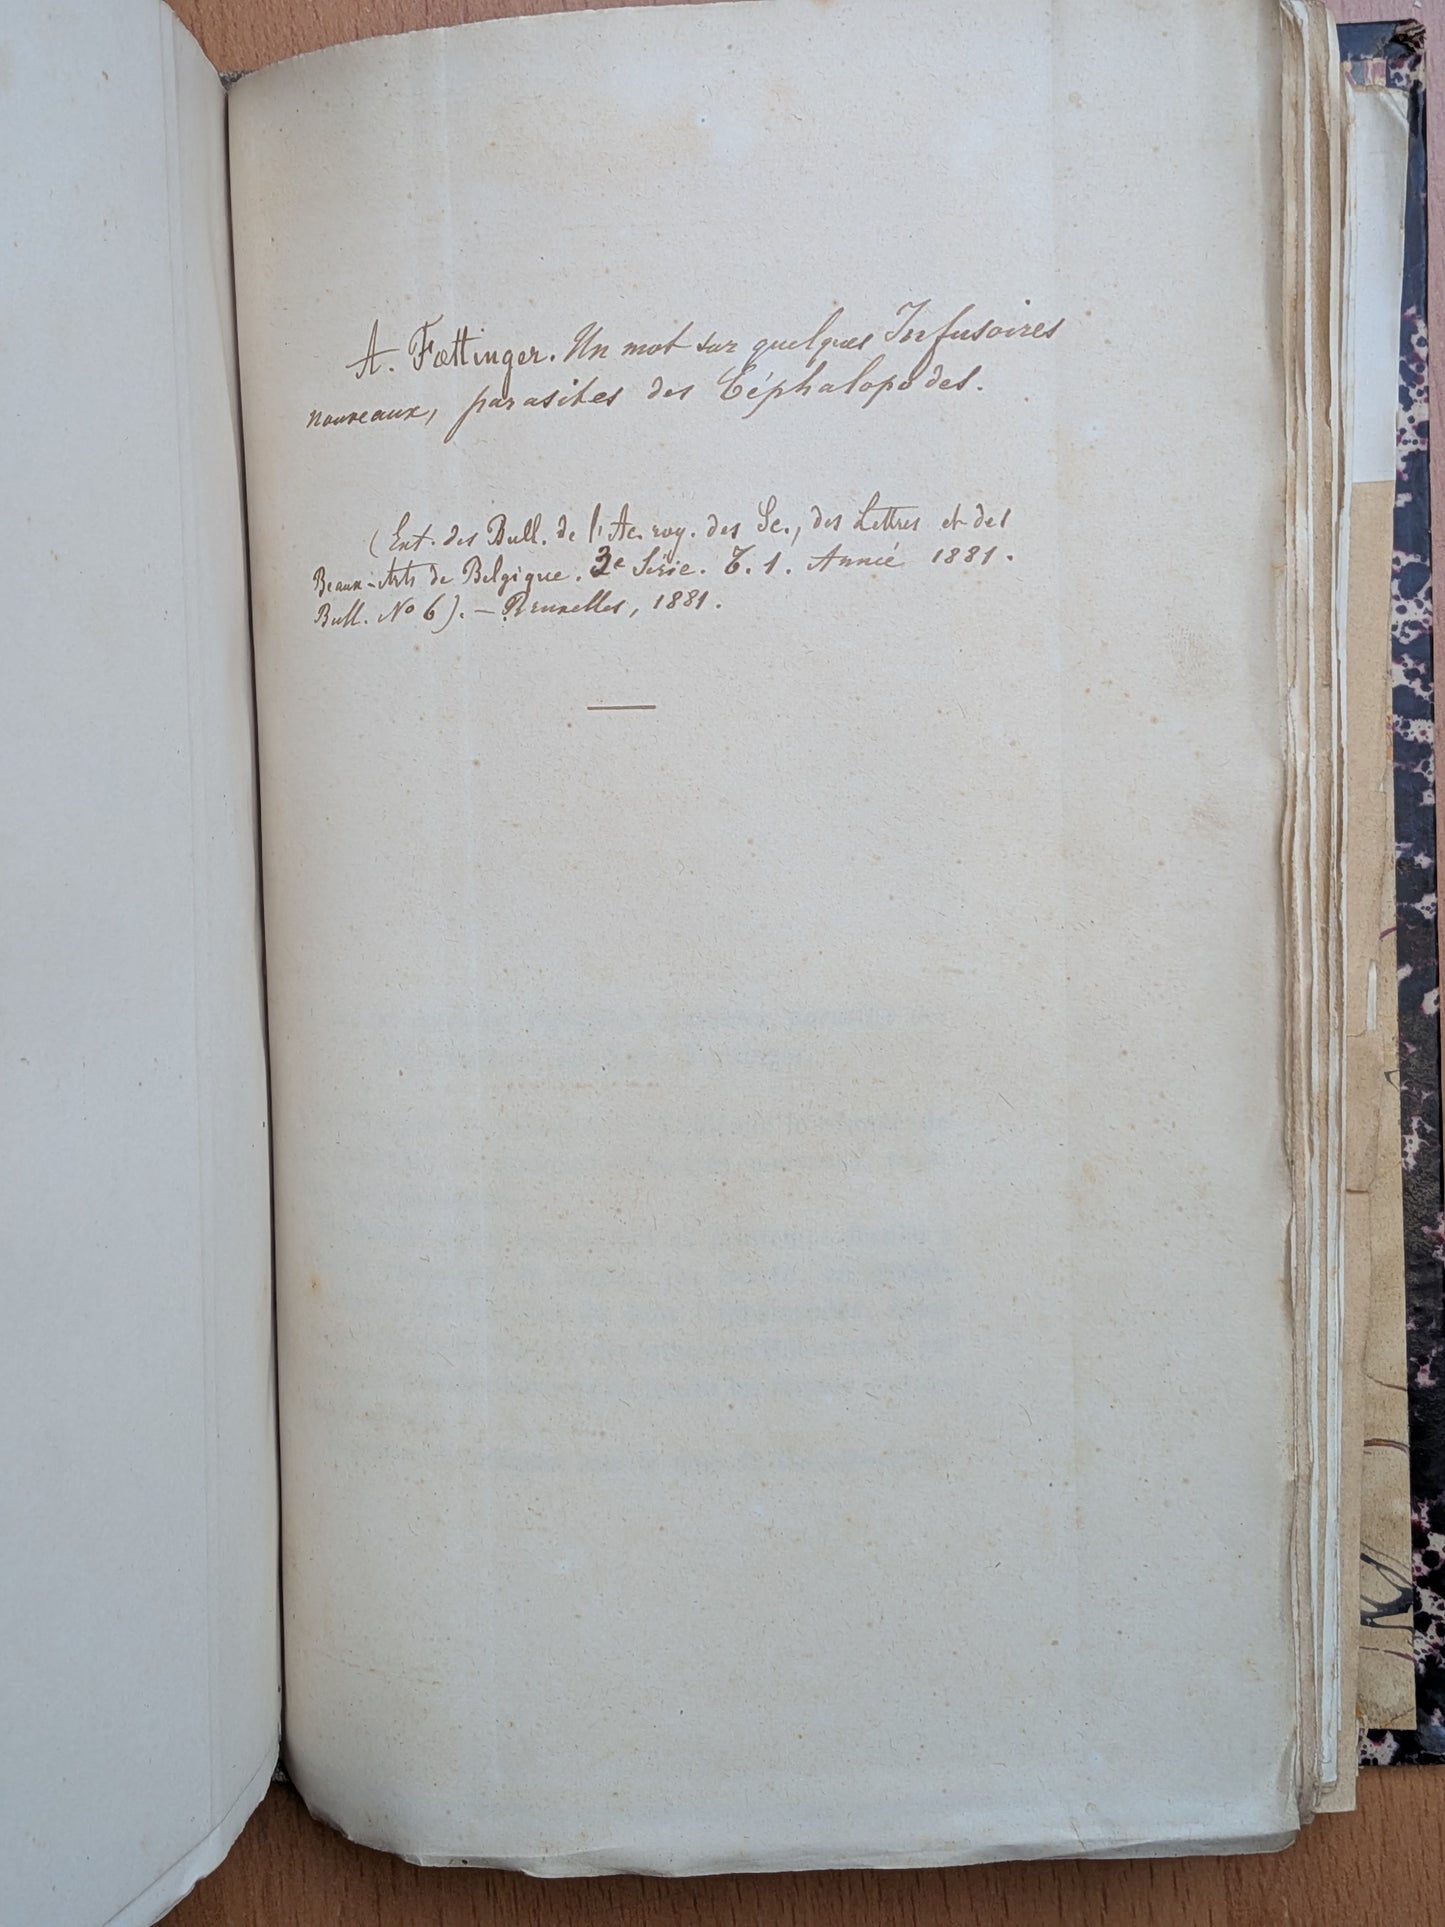 A. Fœttinger. Un mot sur quelques Infusoires
nouveaux, parasites des Céphalopodes.
(Ext. des Bull. de l'Ac. roy. des Sc., des Lettres et des
Beaux-Arts de Belgique. 3e Série. T. 1. Année 1881.
Bull. No 6). — Bruxelles, 1881.